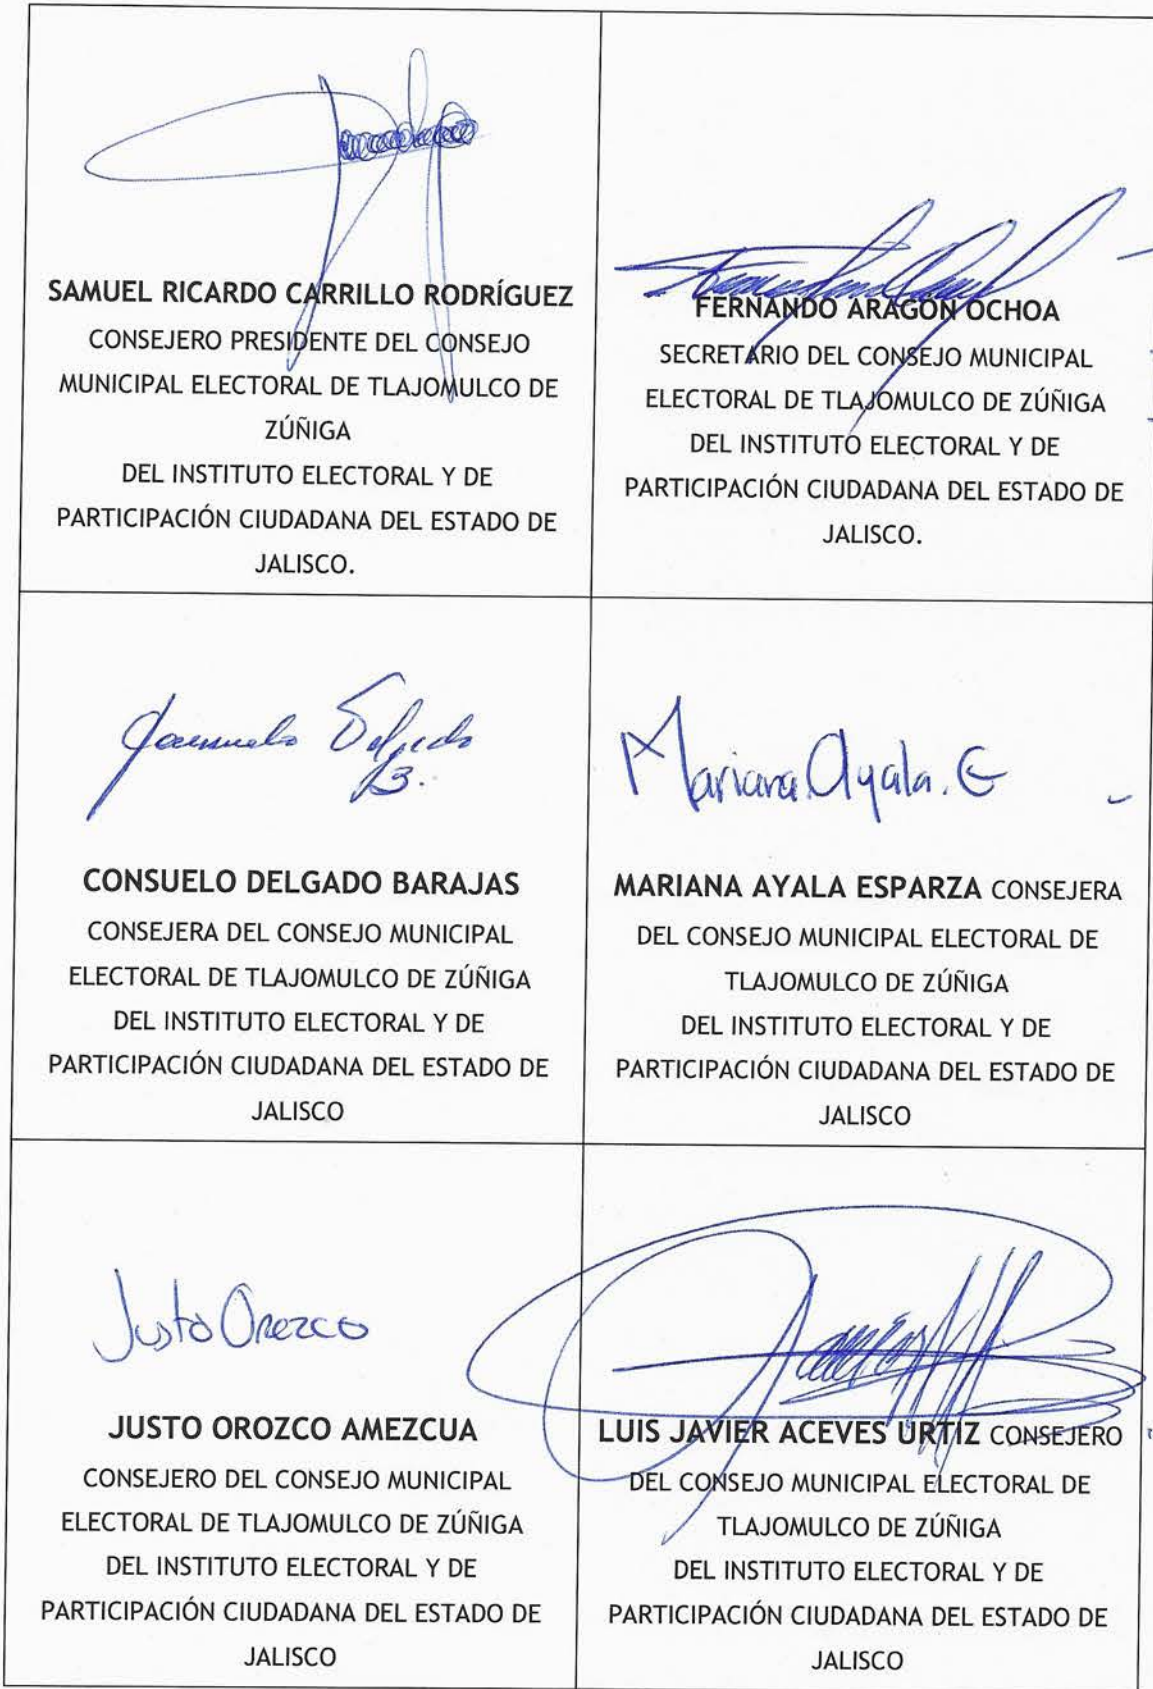 SAMUEL RICARDO CARRILLO RODRÍGUEZ
CONSEJERO PRESIDENTE DEL CONSEJO
MUNICIPAL ELECTORAL DE TLAJOMULCO DE
ZÚÑIGA
DEL INSTITUTO ELECTORAL Y DE
PARTICIPACIÓN CIUDADANA DEL ESTADO DE
JALISCO.
FERNANDO ARAGÓN OCHOA
SECRETARIO DEL CONSEJO MUNICIPAL
ELECTORAL DE TLAJOMULCO DE ZÚÑIGA
DEL INSTITUTO ELECTORAL Y DE
PARTICIPACIÓN CIUDADANA DEL ESTADO DE
JALISCO.
Consuelo Delgado
B.
CONSUELO DELGADO BARAJAS
CONSEJERA DEL CONSEJO MUNICIPAL
ELECTORAL DE TLAJOMULCO DE ZÚÑIGA
DEL INSTITUTO ELECTORAL Y DE
PARTICIPACIÓN CIUDADANA DEL ESTADO DE
JALISCO
Mariana Ayala. E
MARIANA AYALA ESPARZA CONSEJERA
DEL CONSEJO MUNICIPAL ELECTORAL DE
TLAJOMULCO DE ZÚÑIGA
DEL INSTITUTO ELECTORAL Y DE
PARTICIPACIÓN CIUDADANA DEL ESTADO DE
JALISCO
Justo Orozco
JUSTO OROZCO AMEZCUA
CONSEJERO DEL CONSEJO MUNICIPAL
ELECTORAL DE TLAJOMULCO DE ZÚÑIGA
DEL INSTITUTO ELECTORAL Y DE
PARTICIPACIÓN CIUDADANA DEL ESTADO DE
JALISCO
LUIS JAVIER ACEVES URTIZ CONSEJERO
DEL CONSEJO MUNICIPAL ELECTORAL DE
TLAJOMULCO DE ZÚÑIGA
DEL INSTITUTO ELECTORAL Y DE
PARTICIPACIÓN CIUDADANA DEL ESTADO DE
JALISCO